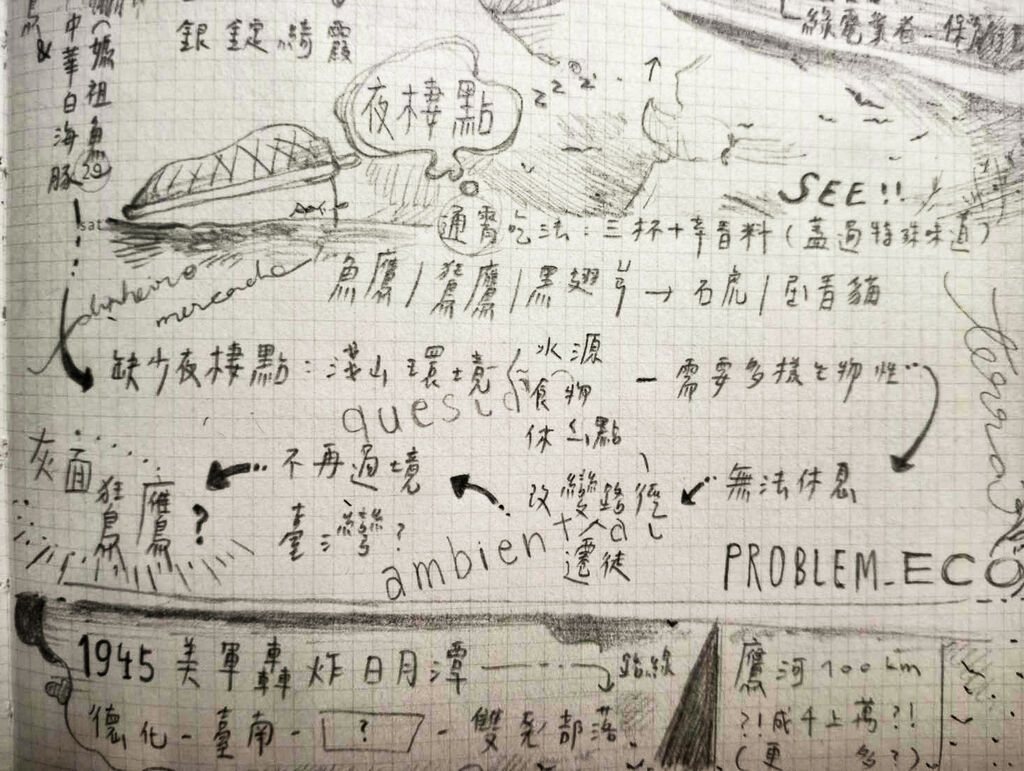 媽祖魚
&
中華白海豚
29
sat
銀錠綺霞
綠電業者-保
夜棲點
zzzz
SEE!!
通霄吃法:三杯+辛香料(蓋過特殊味道)
dinheiro
mercado
魚鷹/鵟鷹/黑翅鳶→石虎/麝香貓
缺少夜棲點:淺山環境
水源
食物
休息點
-需要多樣生物性
無法休息
改變路徑、
遷徙
不再過境
臺灣?
灰面鵟鷹?
ambiental
terra
PROBLEM_ECO
1945美軍轟炸日月潭
路線
德化-臺南-?-雙堯部落
鷹河100km
?!成千上萬?!
(更多?)